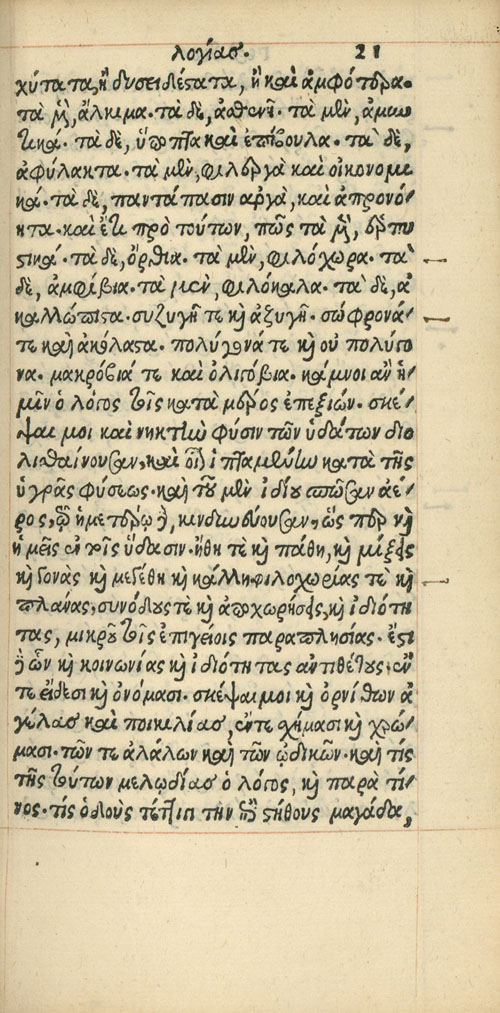 λογίας. 21
χύτατα, ἢ δυσειδέστατα, ἢ καὶ ἀμφότερα·
τὰ μὲν, ἄλκιμα· τὰ δὲ, ἀσθενῆ· τὰ μὲν, ἀμυν
τικά· τὰ δὲ, ὕποπτα καὶ ἐπίβουλα· τὰ δὲ,
ἀφύλακτα· τὰ μὲν, φιλεργὰ καὶ οἰκονομι
κά· τὰ δὲ, παντάπασιν ἀργὰ, καὶ ἀπρονό
ητα· καὶ ἔτι πρὸ τούτων, πῶς τὰ μὲν, ἑρπυ
στικά· τὰ δὲ, ὄρθια· τὰ μὲν, φιλόχωρα· τὰ
δὲ, ἀμφίβια· τὰ μὲν, φιλόκαλα· τὰ δὲ, ἀ
καλλώπιστα· συζυγῆ τε καὶ ἀζυγῆ· σώφρονά
τε καὶ ἀκόλαστα· πολύγονά τε καὶ οὐ πολύγο
να· μακρόβιά τε καὶ ὀλιγόβια· κάμνοι ἂν ἡ
μῖν ὁ λόγος τοῖς κατὰ μέρος ἐπεξιών· σκέ
ψαι μοι καὶ νηκτὴν φύσιν τῶν ὑδάτων διο
λισθαίνουσαν, καὶ οἷον ἱπταμένην κατὰ τῆς
ὑγρᾶς φύσεως· καὶ τοῦ μὲν ἰδίου σπῶσαν ἀέ
ρος, τῷ ἡμετέρῳ δὲ, κινδυνεύουσαν, ὥσπερ καὶ
ἡμεῖς ἐν τοῖς ὕδασιν· ἤθη τὲ καὶ πάθη, καὶ μίξεις
καὶ γονὰς καὶ μεγέθη καὶ κάλλη φιλοχωρίας τὲ καὶ
πλάνας, συνόδους τὲ καὶ ἀποχωρήσεις, καὶ ἰδιότη
τας, μικροῦ τοῖς ἐπιγείοις παραπλησίας. ἔστι
δὲ ὧν καὶ κοινωνίας καὶ ἰδιότητας ἀντιθέτους, ἔν
τε εἴδεσι καὶ ὀνόμασι. σκέψαι μοι καὶ ὀρνίθων ἀ
γέλας καὶ ποικιλίας, ἔν τε σχήμασι καὶ χρώ
μασι· τῶν τε ἀλάλων καὶ τῶν ᾠδικῶν· καὶ τίς
τῆς τούτων μελῳδίας ὁ λόγος, καὶ παρὰ τί
νος· τίς ὁ δοὺς τέττιγι τὴν ἐπὶ στήθους μαγάδα,